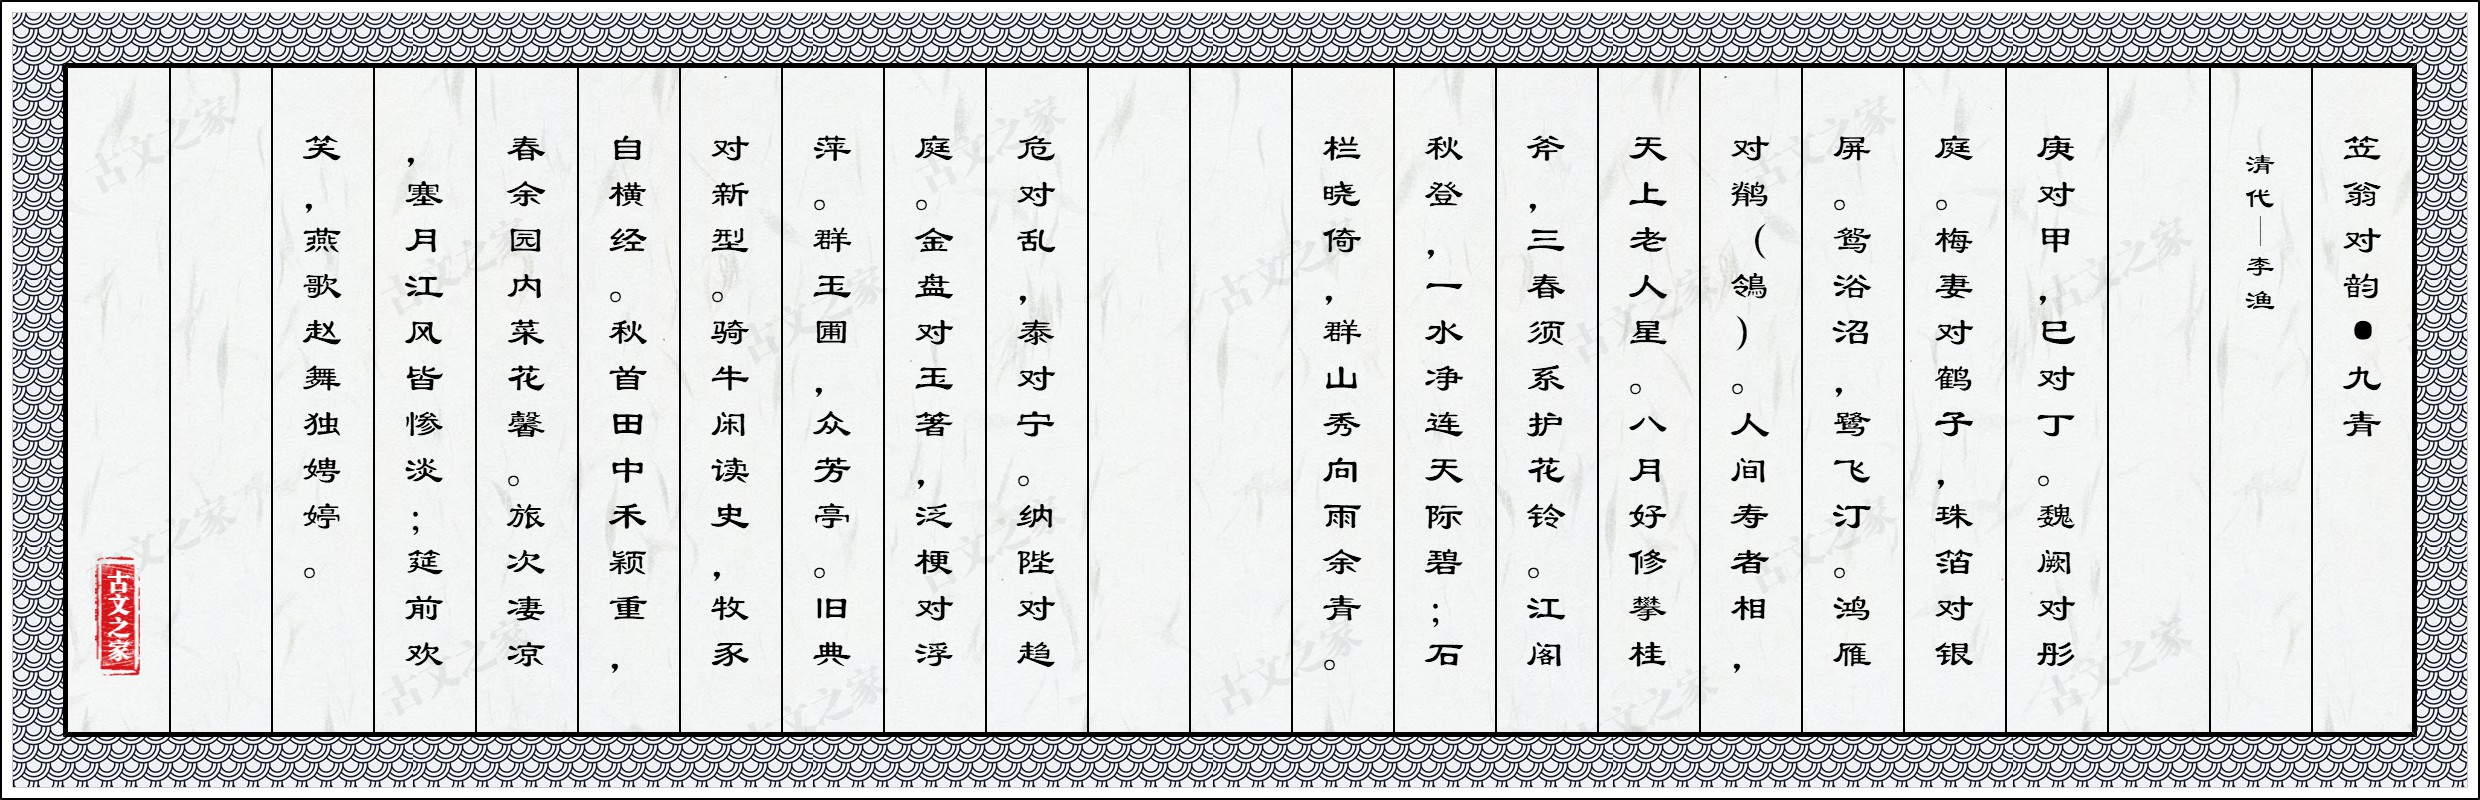 笠翁对韵●九青
清代—李渔
庚对甲，巳对丁。魏阙对彤
庭。梅妻对鹤子，珠箔对银
屏。鸳浴沼，鹭飞汀。鸿雁
对鹡（鸰）。人间寿者相，
天上老人星。八月好修攀桂
斧，三春须系护花铃。江阁
秋登，一水净连天际碧；石
栏晓倚，群山秀向雨余青。
危对乱，泰对宁。纳陛对趋
庭。金盘对玉箸，泛梗对浮
萍。群玉圃，众芳亭。旧典
对新型。骑牛闲读史，牧豕
自横经。秋首田中禾颖重，
春余园内菜花馨。旅次凄凉
，塞月江风皆惨淡；筵前欢
笑，燕歌赵舞独娉婷。
古文之家